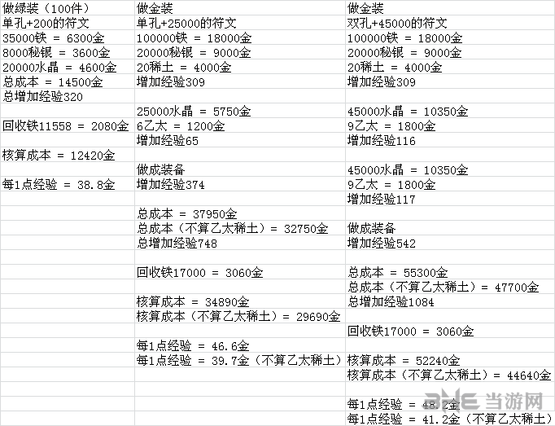 做绿装（100件）
单孔+200的符文
35000铁 = 6300金
8000秘银 = 3600金
20000水晶 = 4600金
总成本 = 14500金
总增加经验320
回收铁11558 = 2080金
核算成本 = 12420金
每1点经验 = 38.8金
做金装
单孔+25000的符文
100000铁 = 18000金
20000秘银 = 9000金
20稀土 = 4000金
增加经验309
25000水晶 = 5750金
6乙太 = 1200金
增加经验65
做成装备
增加经验374
总成本 = 37950金
总成本（不算乙太稀土）= 32750金
总增加经验748
回收铁17000 = 3060金
核算成本 = 34890金
核算成本（不算乙太稀土）= 29690金
每1点经验 = 46.6金
每1点经验 = 39.7金（不算乙太稀土）
做金装
双孔+45000的符文
100000铁 = 18000金
20000秘银 = 9000金
20稀土 = 4000金
增加经验309
45000水晶 = 10350金
9乙太 = 1800金
增加经验116
45000水晶 = 10350金
9乙太 = 1800金
增加经验117
做成装备
增加经验542
总成本 = 55300金
总成本（不算乙太稀土）= 47700金
总增加经验1084
回收铁17000 = 3060金
核算成本 = 52240金
核算成本（不算乙太稀土）= 44640金
每1点经验 = 48.2金
每1点经验 = 41.2金（不算乙太稀土）
当游网